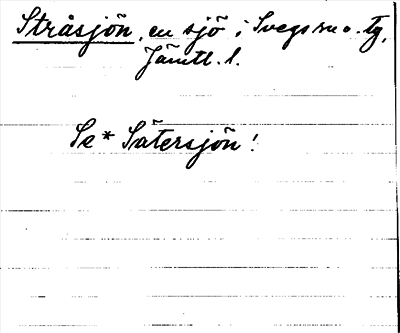 Stråsjön, en sjö i Svegs m. o. tg,
Jämtl. l.
Se * Sätersjön!